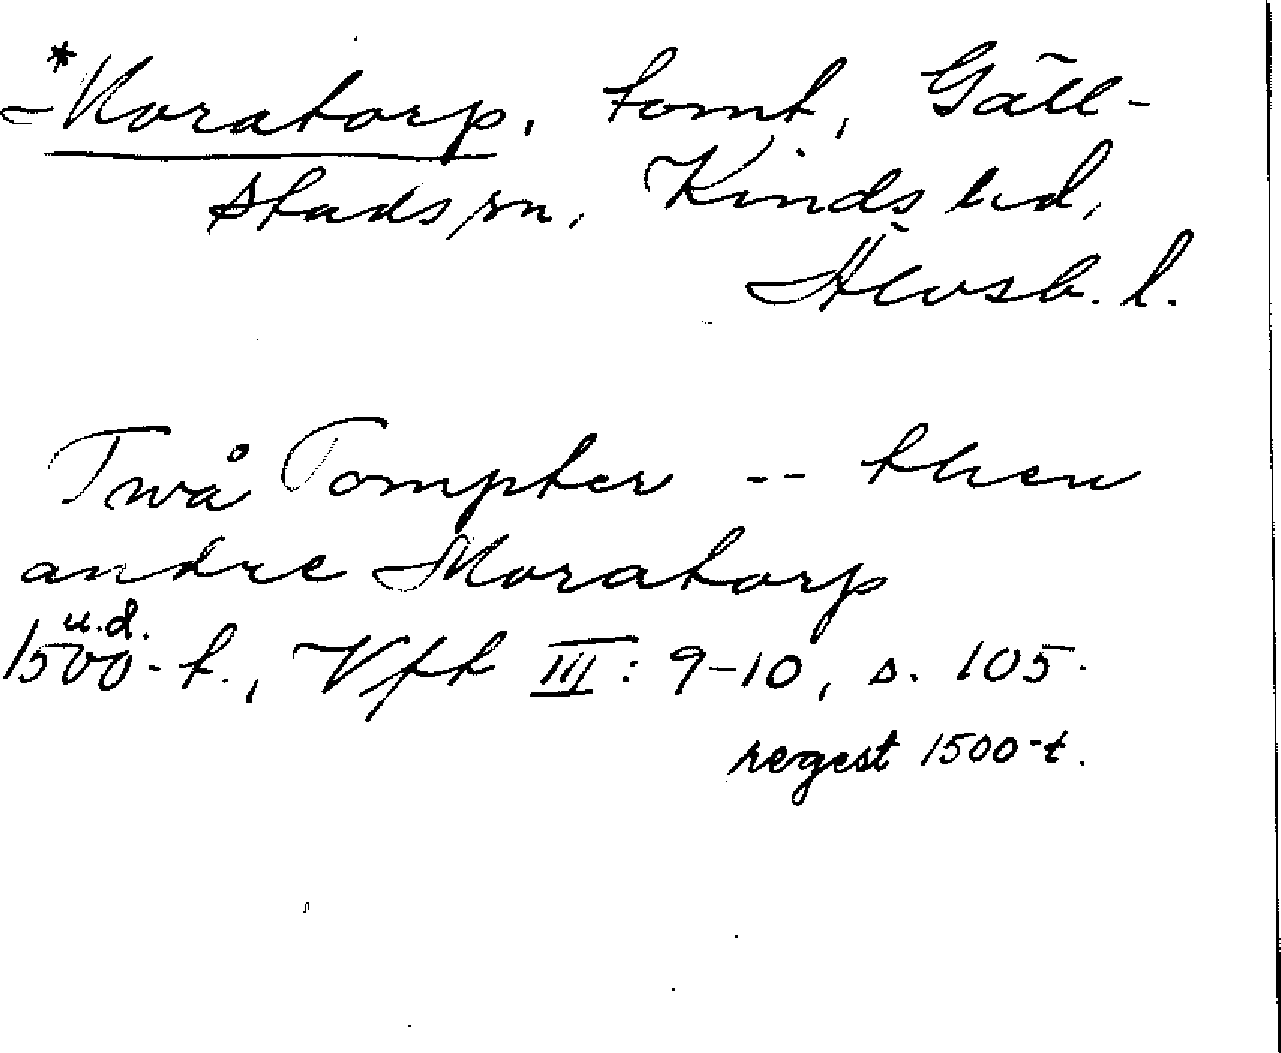 *Moratorp, tomt, Gäll-
stads sn, Kinds hd,
Älvsb. l.
Twå Tompter -- then
andre Moratorp
u.d.
1500-t., Vft III: 9-10, s. 105.
regest 1500-t.